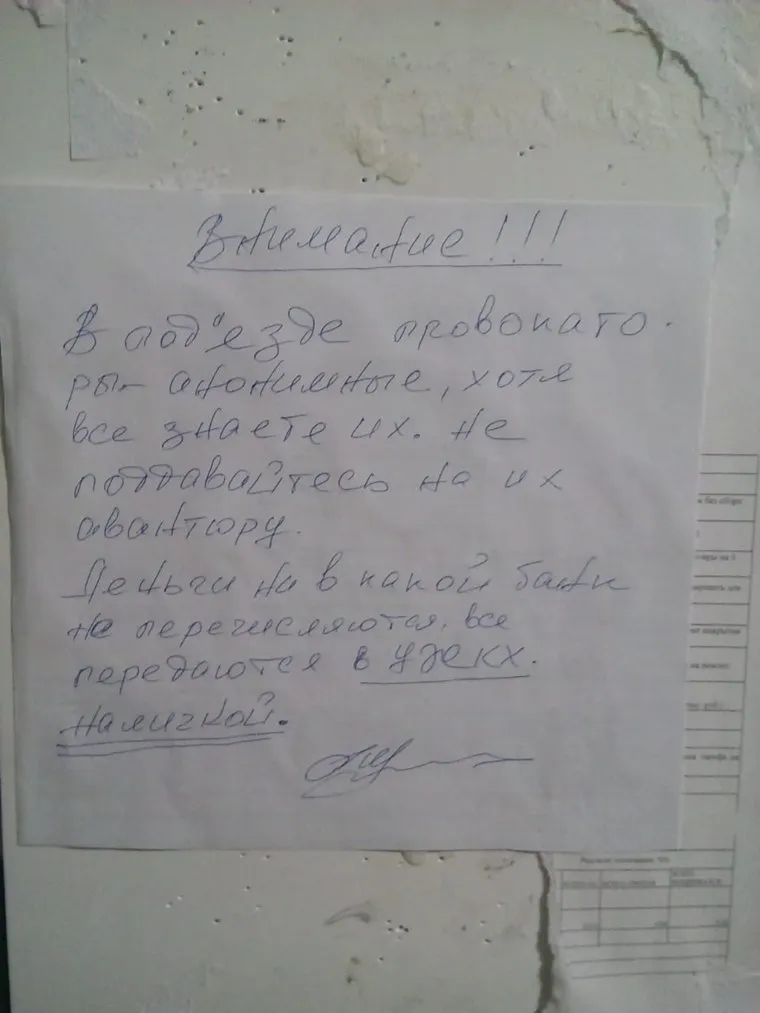 Внимание!!!
В под'езде провокато-
ры- анонимные, хотя
все знаете их. Не
поддавайтесь на их
авантюру.
Деньги ни в какой банк
не перечисляются. все
передаются в УЖЕКХ.
наличкой.